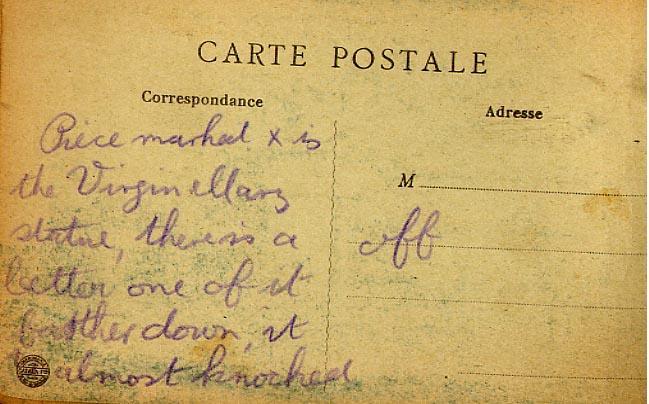 CARTE POSTALE
Correspondance
Piece marked x is
the Virgin Mary
statue, there is a
better one of it
farther down, it
almost knocked
Adresse
M
off